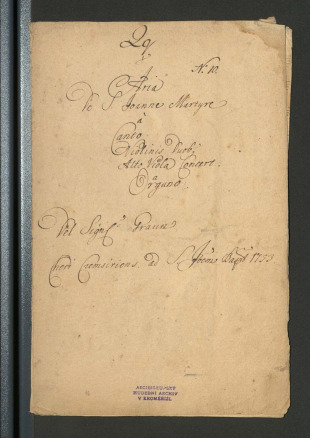 Nr. 10.
Aria
De S Joanne Martyre
à
Canto
Violinis Duob:
Alto Viola Concert.
a
Organo
Del Sigre Graun
Chori Cremsiriens. ad S. Joan̄: Bapt 1753
ARCIBISKUPSKÝ
HUDEBNÍ ARCHIV
V KROMĚŘÍŽI